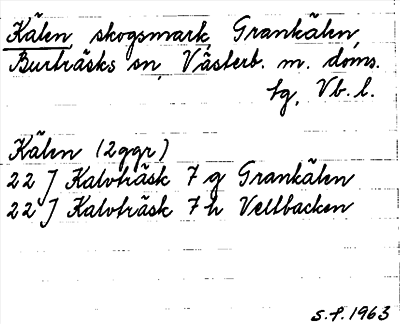 Kälen, skogsmark, Grankälen,
Burträsks sn, Västerb. m. doms.
tg, Vb. l.
Kälen (2ggr)
22 J Kalvträsk 7 g Grankälen
22 J Kalvträsk 7 h Vellbacken
s.f. 1963